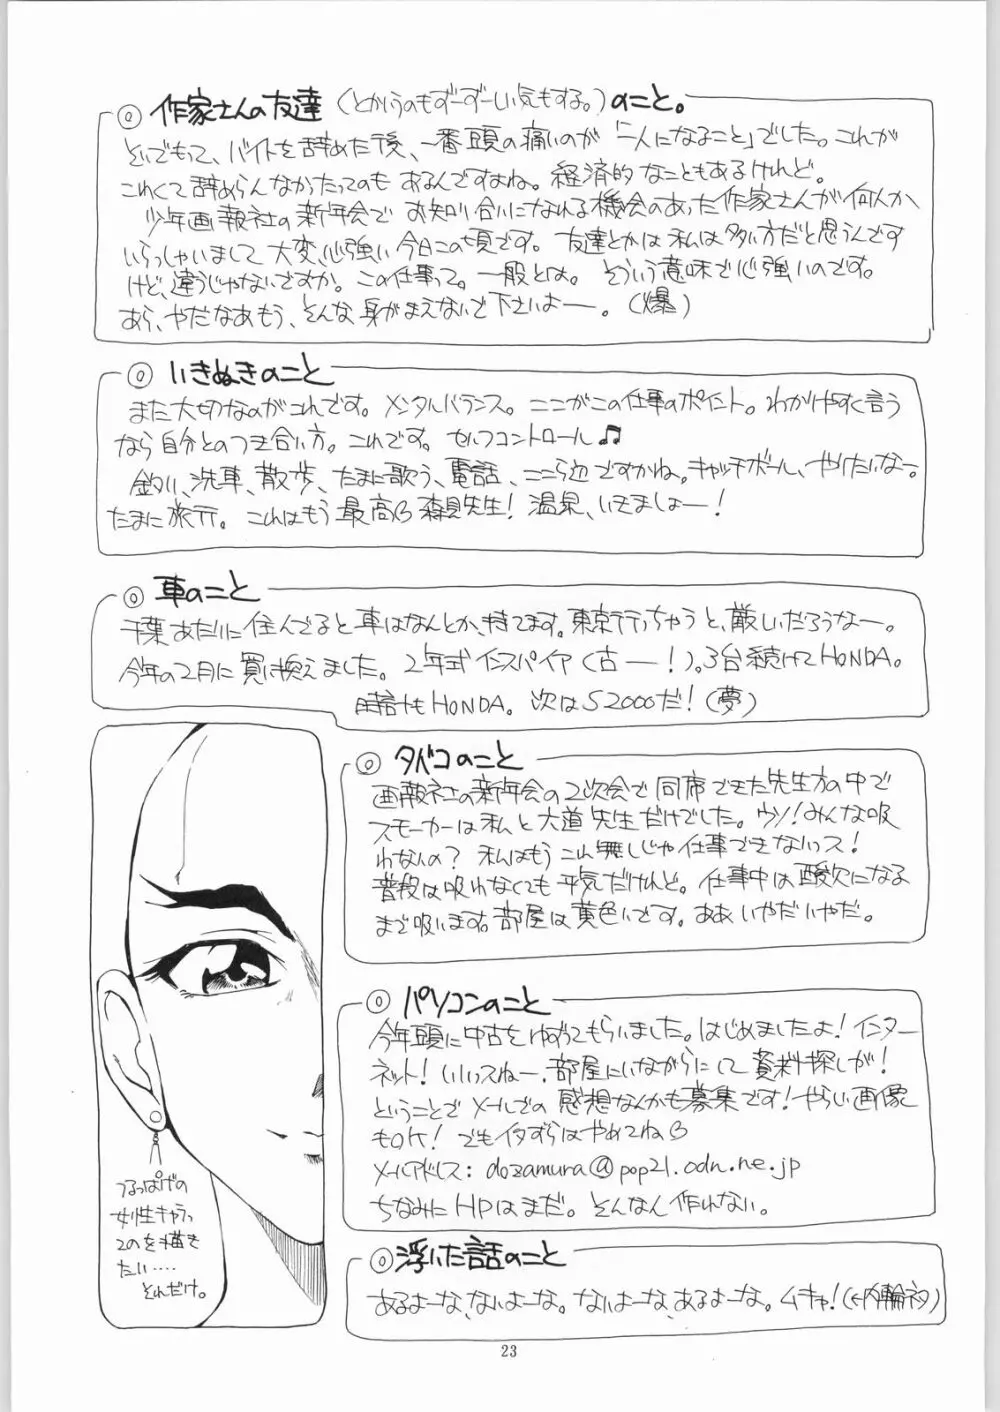 ◎ 作家さんの友達（とかいうのもずーずーしい気もする。）のこと。
といでもって、バイトを辞めた後、一番頭の痛いのが「一人になること」でした。これが
これくて辞めらんなかったってのもあるんですよね。経済的なこともあるけれど。
少年画報社の新年会でお知り合いになれる機会のあった作家さんが何人か、
いらっしゃいまして大変、心強い今日この頃です。友達とかは私は多い方だと思うんです
けど、違うじゃないですか。この仕事って。一般とは。そういう意味で心強いのです。
あら、やだなあもう、そんな身がまえないで下さいよー。（爆）
◎ いきぬきのこと
また大切なのがこれです。メンタルバランス。ここがこの仕事のポイント。わかりやすく言う
なら自分とのつき合い方。これです。セルフコントロール♫
釣り、洗車、散歩、たまに歌う、電話、ここら辺ですかね。キャッチボール、やりたいなー。
たまに旅行。これはもう最高っす森見先生！温泉、いきましょー！
◎ 車のこと
千葉あたりに住んでると車はなんとか、持てます。東京行っちゃうと、厳しいだろうなー。
今年の2月に買い換えました。2年式インスパイア（古ー！）。3台続けてHONDA。
時計もHONDA。次はS2000だ！（夢）
◎ タバコのこと
画報社の新年会の2次会で同席できた先生方の中で
スモーカーは私と大道先生だけでした。ウソ！みんな吸
わないの？私はもうこれ無しじゃ仕事できないっス！
普段は吸わなくても平気だけれど。仕事中は酸欠になる
まで吸います。部屋は黄色いです。ああいやだいやだ。
◎ パソコンのこと
今年頭に中古をゆずってもらいました。はじめましたよ！インター
ネット！いいっスねー、部屋にいながらにして資料探しが！
ということでメールでの感想なんかも募集です！やらしい画像
もOK！でもイタずらはやめてね
メールアドレス：dozamura@pop21.odn.ne.jp
ちなみにHPはまだ。そんなん作れない。
◎ 浮いた話のこと
あるよーな、ないよーな。ないよーな、あるよーな。ムキャ！（←内輪ネタ）
つるっぱげの
女性キャラっ
てのを描き
たい‥‥
それだけ。
23